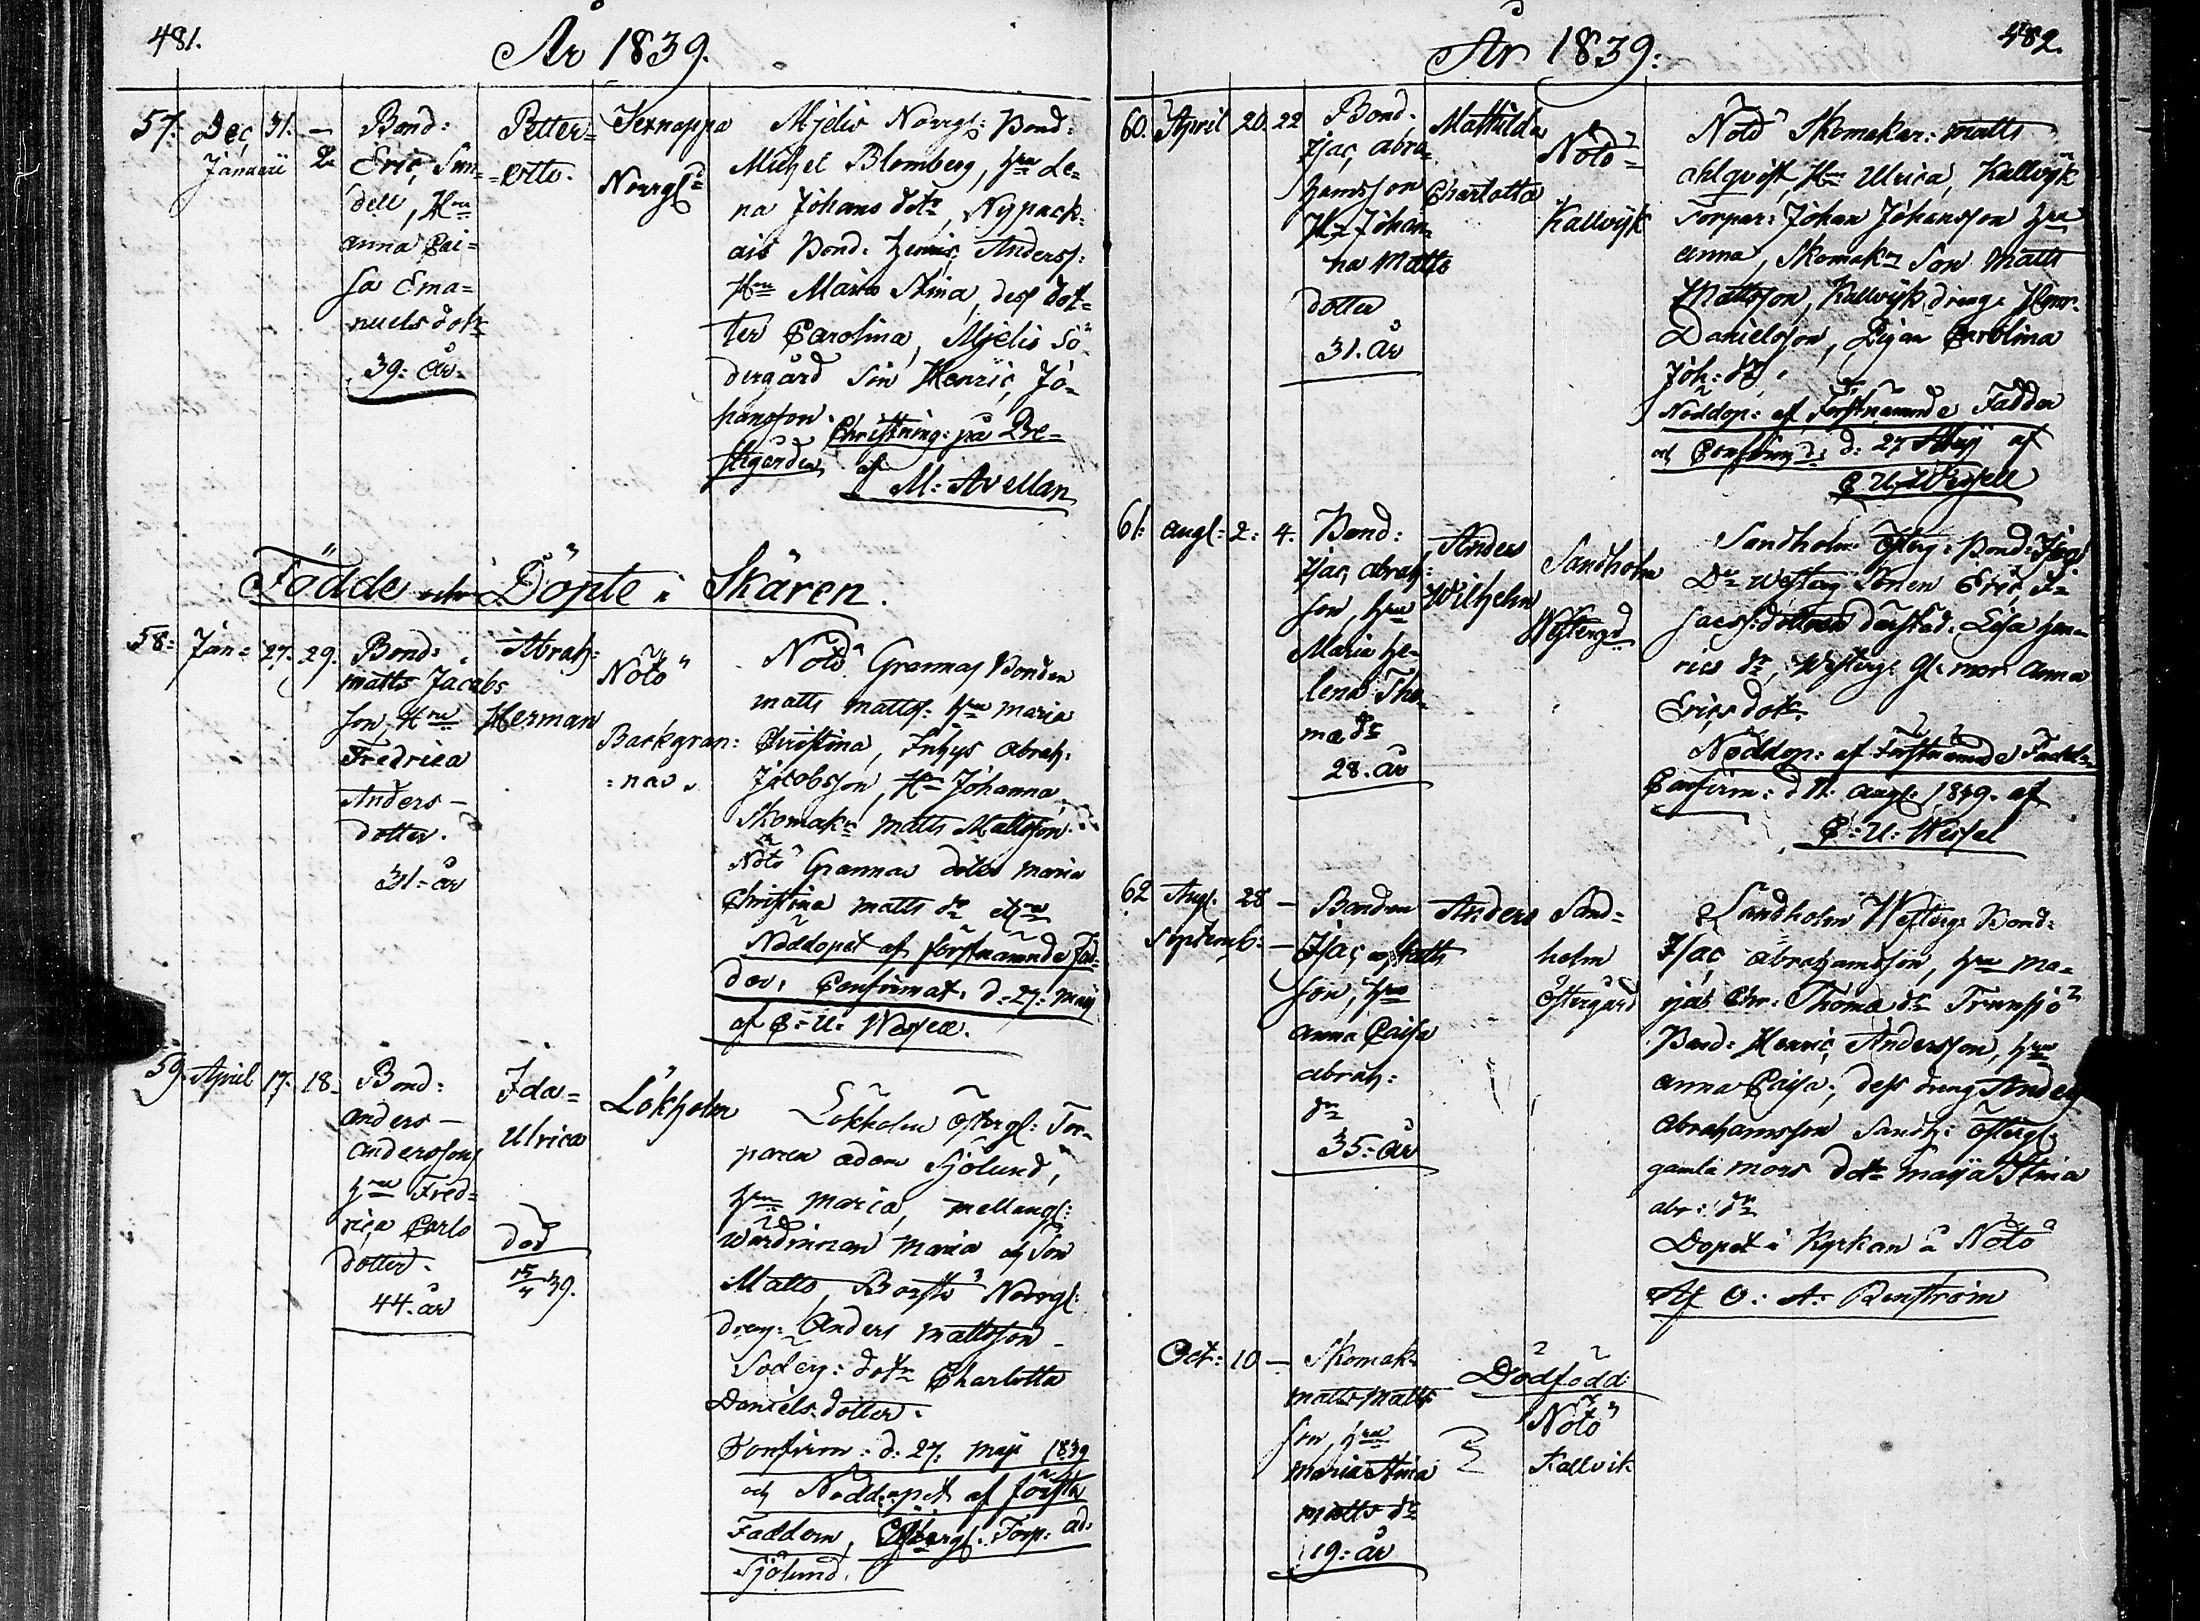 481.
År 1839.
57. Dec. 31. —
Januarii 2
Bond:
Eric Sun-
dell, Hru
Anna Cai-
sa Ema-
nuels dotr
39: År
Petter-
Otto.
Jernappa
Norrgl:
Mjelis Norrgl: Bond:
Michel Blomberg, hru Le-
na Johans dotr, Nypack-
ais Bond: Henric Anderss:
Hru Maria Stina, dess dot-
ter Carolina, Mjelis Sö-
dergård Son Henric Jo-
hansson. Christning: på Pre-
stgården af
M: Avellan
Födde och Döpte i Skären.
58: Jan: 27. 29.
Bond:
Matts Jacobs
son, Hru
Fredrica
Anders-
dotter.
31-år
Abrah:
Herman
Nötö
Backgran:
:nas.
Nötö Grannas Bonden
Matts Matts: hru Maria
Christina, Inhys Abrah:
Jacobsson, Hru Johanna
Skomakr Matts Mattsson
Nötö Grannas dotter Maria
Christina Matts dr
Nöddöpet af förstnämnde Fad-
der, Confirmat: d. 27: Maij
af C: U: Wessell.
59. April 17. 18.
Bond:
Anders
Anderssons
hru Fred-
rica Carls
dotter.
44. år
Ida-
Ulrica
död
39.
Lökholm
Lökholm Östergl: Tor-
paren Adam Sjölund,
hru Maria, Mellangl:
Wärdinnan Maria och Son
Matts, Borstö Norrgl:
Dreng: Anders Mattsson
Söderg: dotr Charlotta
Daniels dotter.
Confirm: d. 27. Maji 1839
och Nöddöpet af första
Faddern, Östergl: Torp: Ad:
Sjölund.
År 1839:
482.
60. April 20. 22
Bond.
Isac Abra-
hamsson
Hr Johan-
na Matts
dotter
31. År
Mathilda
Charlotta
Nötö-
Kallvijk
Nötö Skomakar: Matts
Ahlqvist, Hru Ulrica, Kallvijk
Torpar: Johan Johansson hru
Anna, Skomakr Son Matts
Mattsson, Kallvijk dreng: Henr.
Danielsson, Pigan Carolina
Joh: dr.
Nöddöp: af Förstnämnde Fadder
och Confirm: d: 27 Maij af
C U: Wessell
61: Augl: 2: 4.
Bond:
Isac Abrah:
son, hru
Maria He-
lena Tho-
mæ dr
28. år
Anders
Wilhelm
Sandholm
Westergd
Sandholm Österg: Bond: Isac
Dr Westerg Sonen Eric I-
sacss: dottren därstad: Lisa Hen-
rics dr, Westerg: Gl: mor Anna
Erics dotr.
Nöddöp: af Förstnämnde Fadder
Confirm: d 11. Augl: 1839. af
C: U: Wessel
62 Augl. 28 —
Septemb: —
Bonden
Isac Matts
son, hru
Anna Caisa
Abrah:
dr
35.-år
Anders
Sand-
holm
Östergård
Sandholm Westerg: Bond:
Isac Abrahamsson, hru Ma-
rja Chr: Thomæ dr Trunsjö
Bond: Henric Andersson, hru
Anna Caisa; dess dreng Anders
Abrahamsson Sandh: Östergl:
gamla Mors dotr Maja Stina
Abr: dr
Döpet i Kyrkan å Nötö
Af O: A: Renström
Oct: 10 —
Skomak:
Matts Matts
son, hru
Maria Stina
Matts dr
19: år
Dödfödd
Nötö
Kallvik